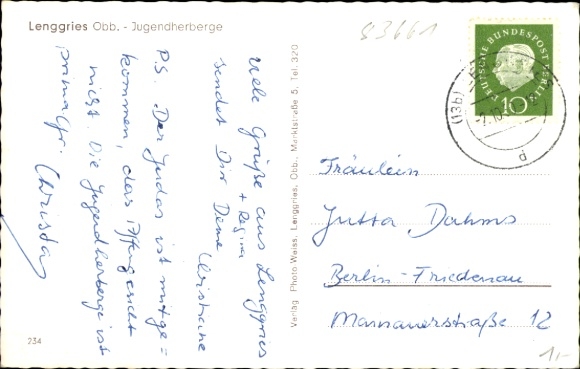 Lenggries Obb. - Jugendherberge
83661
DEUTSCHE BUNDESPOST BERLIN
10
(13b)
d
Viele Grüße aus Lenggries
+ Regina
sendet Dir Deine Christiane
P.S. Der Judas ist mitge=
kommen, das Affengesicht
nicht. Die Jugendherberge ist
prima
Christa
Verlag Photo Weiss, Lenggries, Obb. Marktstraße 5, Tel. 320
Fräulein
Jutta Dahms
Berlin-Friedenau
Mainauerstraße 12
234
1,-